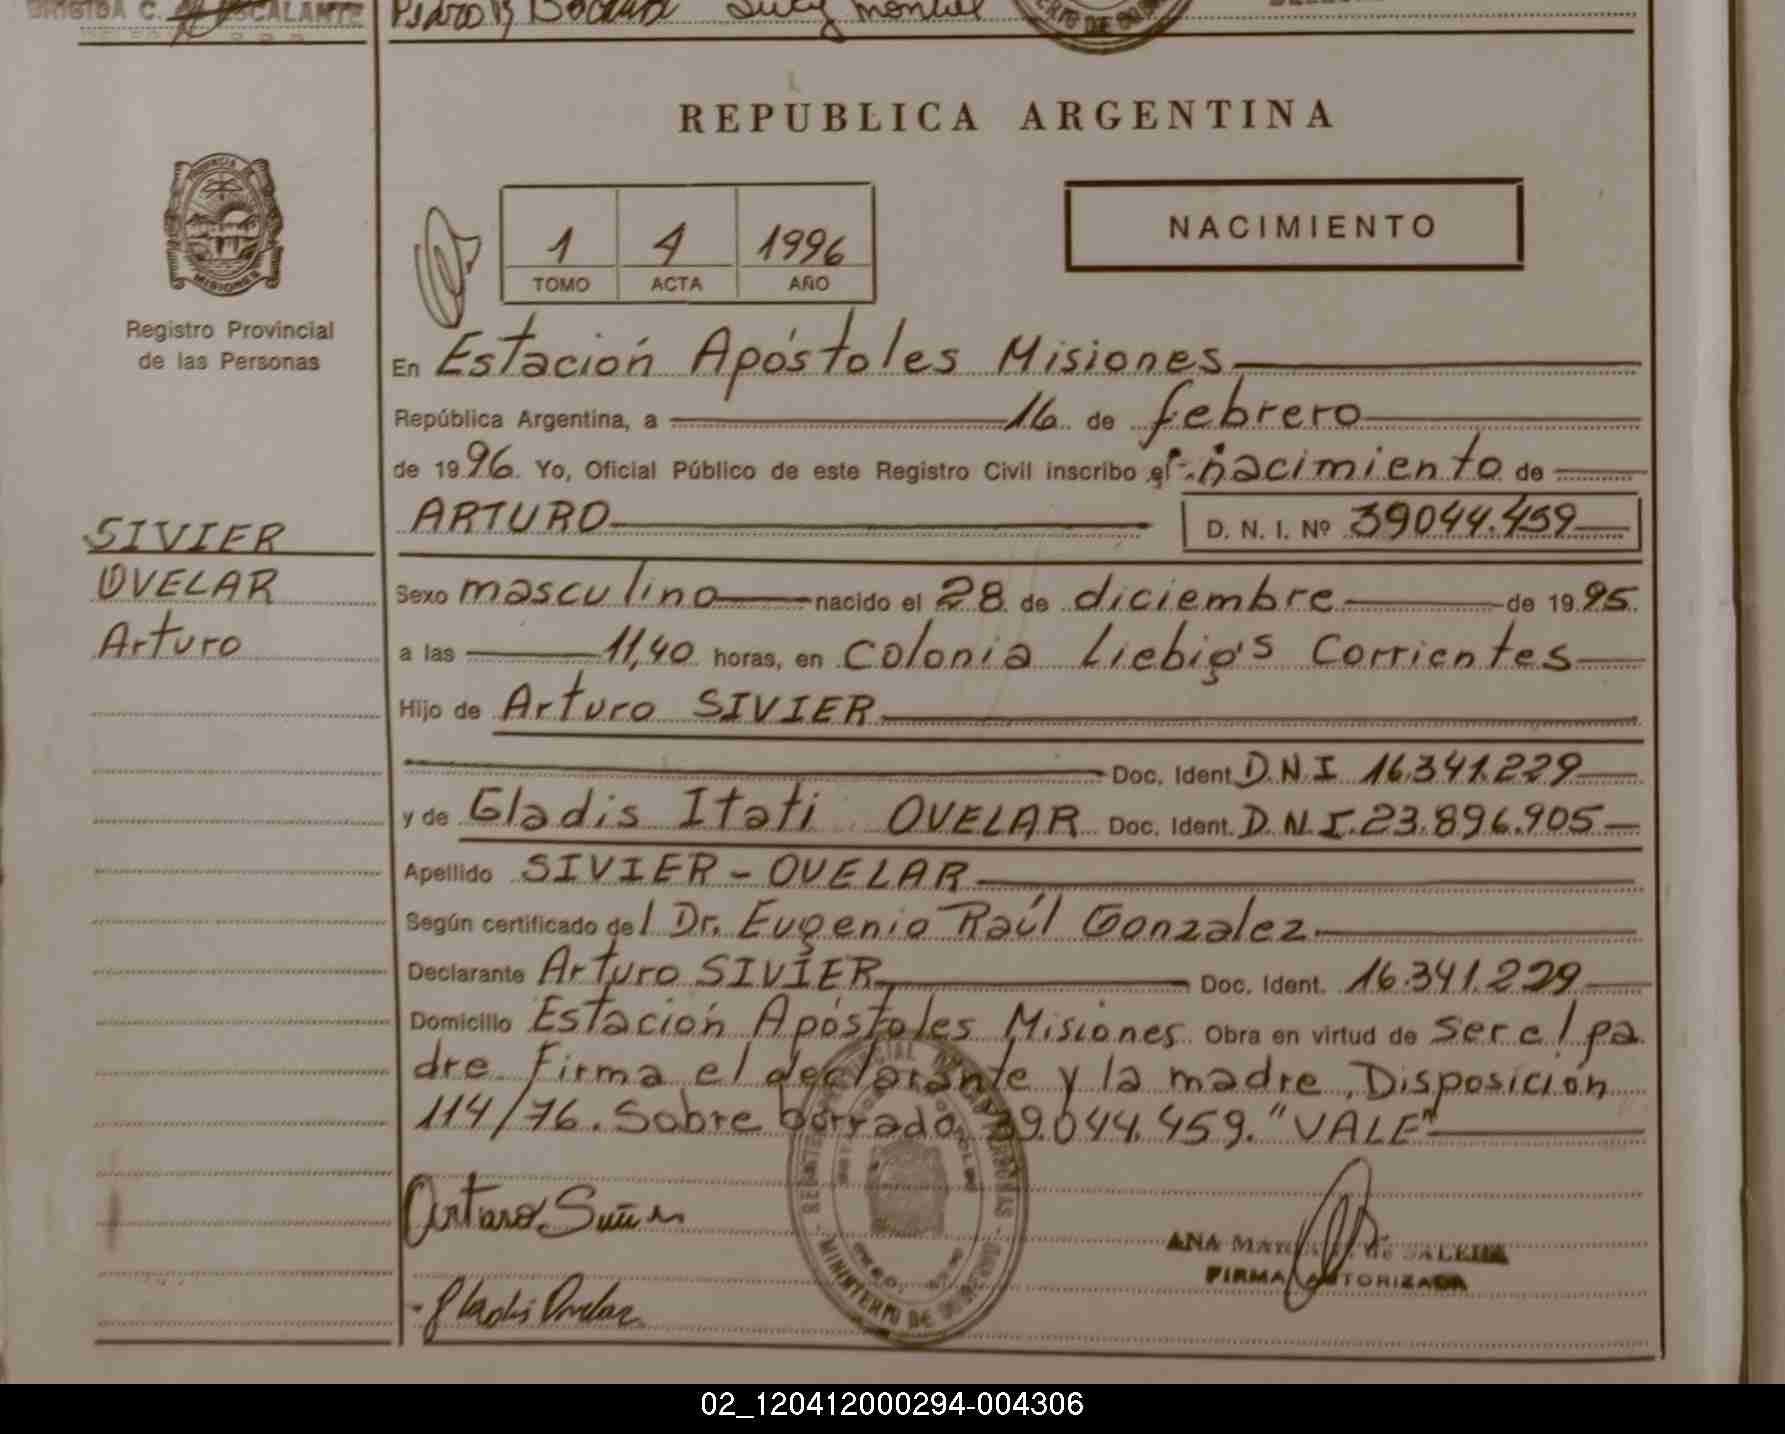 BRIGIDA C. ESCALANTE
REPUBLICA ARGENTINA
PROVINCIA
MISIONES
Registro Provincial
de las Personas
1 4 1996
TOMO ACTA AÑO
NACIMIENTO
En Estación Apóstoles Misiones
República Argentina, a 16 de febrero
de 1996. Yo, Oficial Público de este Registro Civil inscribo el nacimiento de
ARTURO D. N. I. Nº 39044.459
SIVIER
OVELAR
Arturo
Sexo masculino nacido el 28 de diciembre de 1995.
a las 11,40 horas, en Colonia Liebig's Corrientes
Hijo de Arturo SIVIER
Doc. Ident. D.N.I 16.341.229
y de Gladis Itati OVELAR Doc. Ident. D.N.I. 23.896.905
Apellido SIVIER - OVELAR
Según certificado del Dr. Eugenio Raúl Gonzalez
Declarante Arturo SIVIER Doc. Ident. 16.341.229
Domicilio Estación Apóstoles Misiones Obra en virtud de ser el pa
dre. Firma el declarante y la madre. Disposición
114/76. Sobre borrado 39.044.459. "VALE"
Arturo
Gladis Ovelar
MINISTERIO DE GOBIERNO
ANA
FIRMA AUTORIZADA
02_120412000294-004306